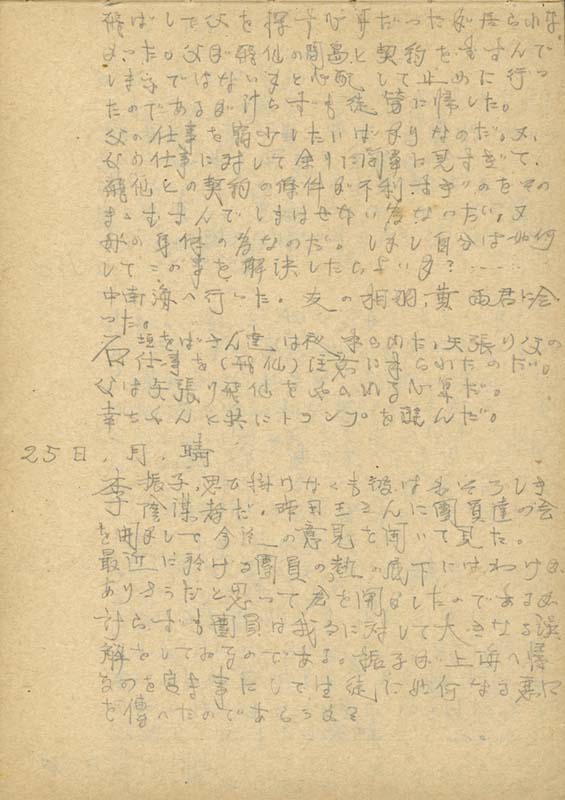 飛ばして父を探す心算だったが居られな
かった。父が飛仙の問題と契約を
しまうではないかと心配して止めに行っ
たのであるが計らずも徒労に帰した。
父の仕事を したいばかりなのだ。又、
父の仕事に対して余りに簡単に見すぎて、
飛仙との契約の條件が不利 のをその
まますんでしまはせない為なのだ。又
母の身体の為なのだ。しかし自分は如何
してこの事を解決したらよいか?……
中南海へ行った。友の 黄雨君に会
った。
石垣をばさん達は 来られた。矢張り父の
仕事を(飛仙) に来られたのだ。
父は矢張り飛仙をやめる心算だ。
幸ちゃんと共にトランプを 。
25日、月、晴
李振子、思ひ掛けなくも彼はおそろしき
陰謀者だ。昨日王さんに團員達の会
を開かして今迄の意見を聞いて見た。
最近に於ける團員の熱の底下にはわけが
ありそうだと思って会を開かしたのであるが
計らずも團員は我々に対して大きなる誤
解をしておるのである。振子が上海へ帰
るのを 事にして生徒に如何なる悪口
を傳へたのであらうか?